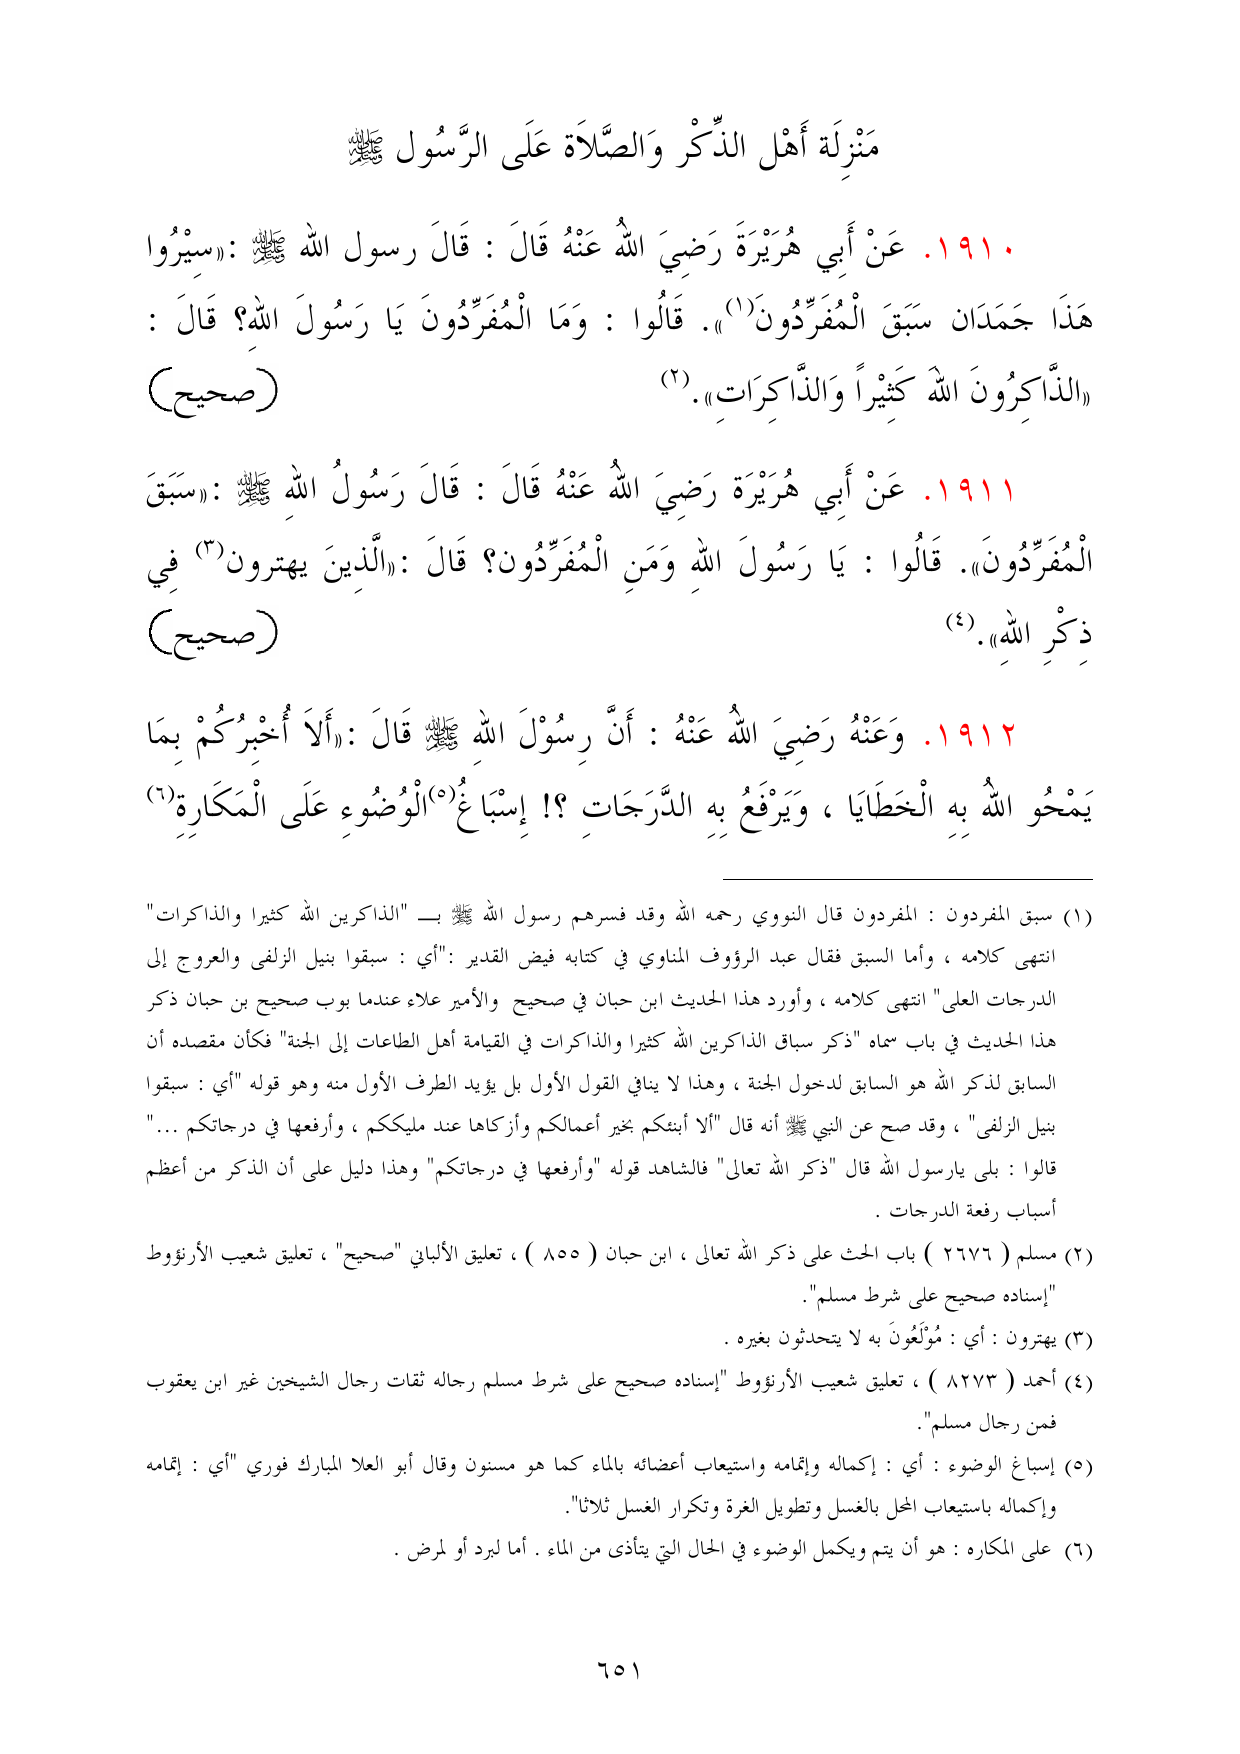 مَنْزِلَة أَهْل الذِّكْر وَالصَّلاَة عَلَى الرَّسُول ﷺ
١٩١٠. عَنْ أَبِي هُرَيْرَةَ رَضِيَ اللهُ عَنْهُ قَالَ : قَالَ رسول الله ﷺ :«سِيْرُوا
هَذَا جَمَدَان سَبَقَ الْمُفَرِّدُونَ(١)». قَالُوا : وَمَا الْمُفَرِّدُونَ يَا رَسُولَ اللهِ؟ قَالَ :
«الذَّاكِرُونَ اللهَ كَثِيْراً وَالذَّاكِرَاتِ».(٢) (صحيح)
١٩١١. عَنْ أَبِي هُرَيْرَة رَضِيَ اللهُ عَنْهُ قَالَ : قَالَ رَسُولُ اللهِ ﷺ :«سَبَقَ
الْمُفَرِّدُونَ». قَالُوا : يَا رَسُولَ اللهِ وَمَنِ الْمُفَرِّدُون؟ قَالَ :«الَّذِينَ يهترون(٣) فِي
ذِكْرِ اللهِ».(٤) (صحيح)
١٩١٢. وَعَنْهُ رَضِيَ اللهُ عَنْهُ : أَنَّ رِسُوْلَ اللهِ ﷺ قَالَ :«أَلاَ أُخْبِرُكُمْ بِمَا
يَمْحُو اللهُ بِهِ الْخَطَايَا ، وَيَرْفَعُ بِهِ الدَّرَجَاتِ ؟! إِسْبَاغُ(٥)الْوُضُوءِ عَلَى الْمَكَارِهِ(٦)
(١) سبق المفردون : المفردون قال النووي رحمه الله وقد فسرهم رسول الله ﷺ بـــ "الذاكرين الله كثيرا والذاكرات"
انتهى كلامه ، وأما السبق فقال عبد الرؤوف المناوي في كتابه فيض القدير :"أي : سبقوا بنيل الزلفى والعروج إلى
الدرجات العلى" انتهى كلامه ، وأورد هذا الحديث ابن حبان في صحيح والأمير علاء عندما بوب صحيح بن حبان ذكر
هذا الحديث في باب سماه "ذكر سباق الذاكرين الله كثيرا والذاكرات في القيامة أهل الطاعات إلى الجنة" فكأن مقصده أن
السابق لذكر الله هو السابق لدخول الجنة ، وهذا لا ينافي القول الأول بل يؤيد الطرف الأول منه وهو قوله "أي : سبقوا
بنيل الزلفى" ، وقد صح عن النبي ﷺ أنه قال "ألا أبنئكم بخير أعمالكم وأزكاها عند مليككم ، وأرفعها في درجاتكم ..."
قالوا : بلى يارسول الله قال "ذكر الله تعالى" فالشاهد قوله "وأرفعها في درجاتكم" وهذا دليل على أن الذكر من أعظم
أسباب رفعة الدرجات .
(٢) مسلم ( ٢٦٧٦ ) باب الحث على ذكر الله تعالى ، ابن حبان ( ٨٥٥ ) ، تعليق الألباني "صحيح" ، تعليق شعيب الأرنؤوط
"إسناده صحيح على شرط مسلم".
(٣) يهترون : أي : مُوْلَعُونَ به لا يتحدثون بغيره .
(٤) أحمد ( ٨٢٧٣ ) ، تعليق شعيب الأرنؤوط "إسناده صحيح على شرط مسلم رجاله ثقات رجال الشيخين غير ابن يعقوب
فمن رجال مسلم".
(٥) إسباغ الوضوء : أي : إكماله وإتمامه واستيعاب أعضائه بالماء كما هو مسنون وقال أبو العلا المبارك فوري "أي : إتمامه
وإكماله باستيعاب المحل بالغسل وتطويل الغرة وتكرار الغسل ثلاثا".
(٦) على المكاره : هو أن يتم ويكمل الوضوء في الحال التي يتأذى من الماء . أما لبرد أو لمرض .
٦٥١